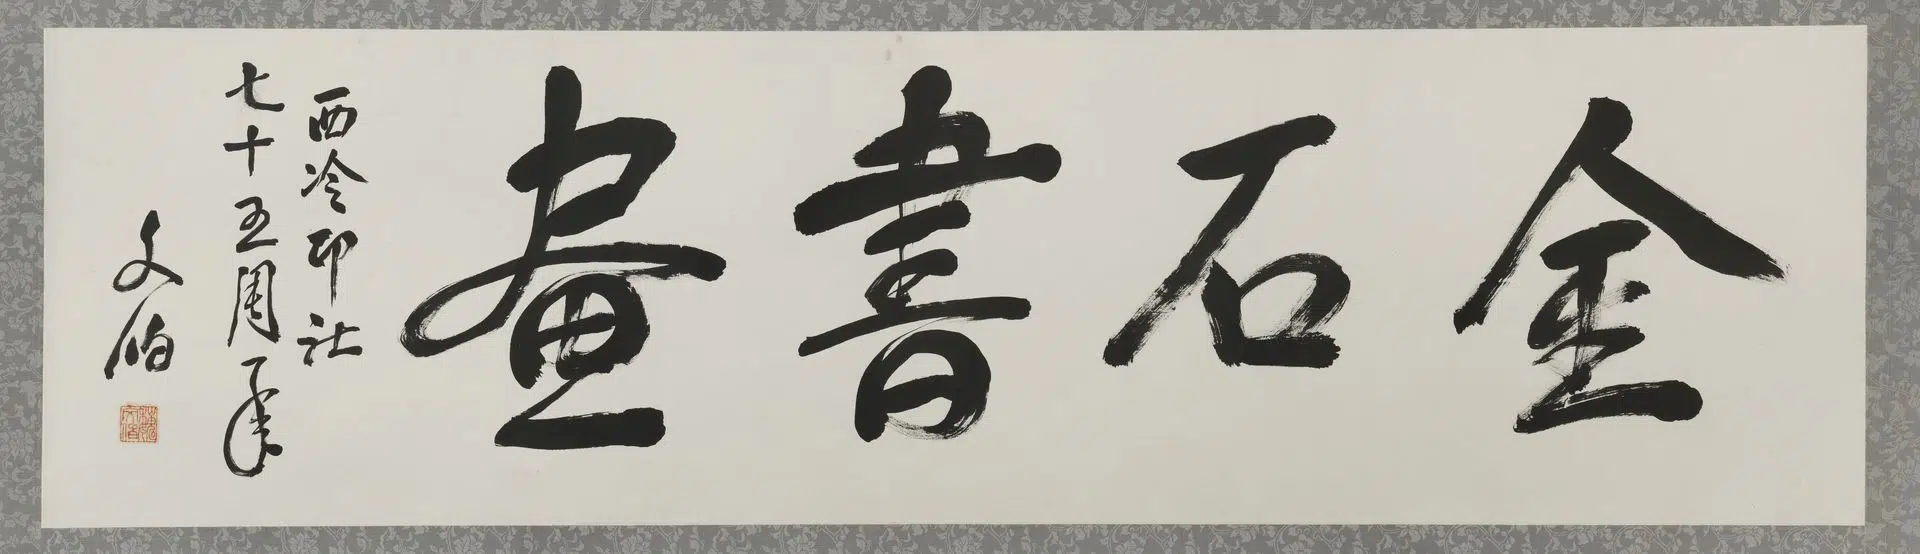 金石書畫
西泠印社
七十五周年
文伯